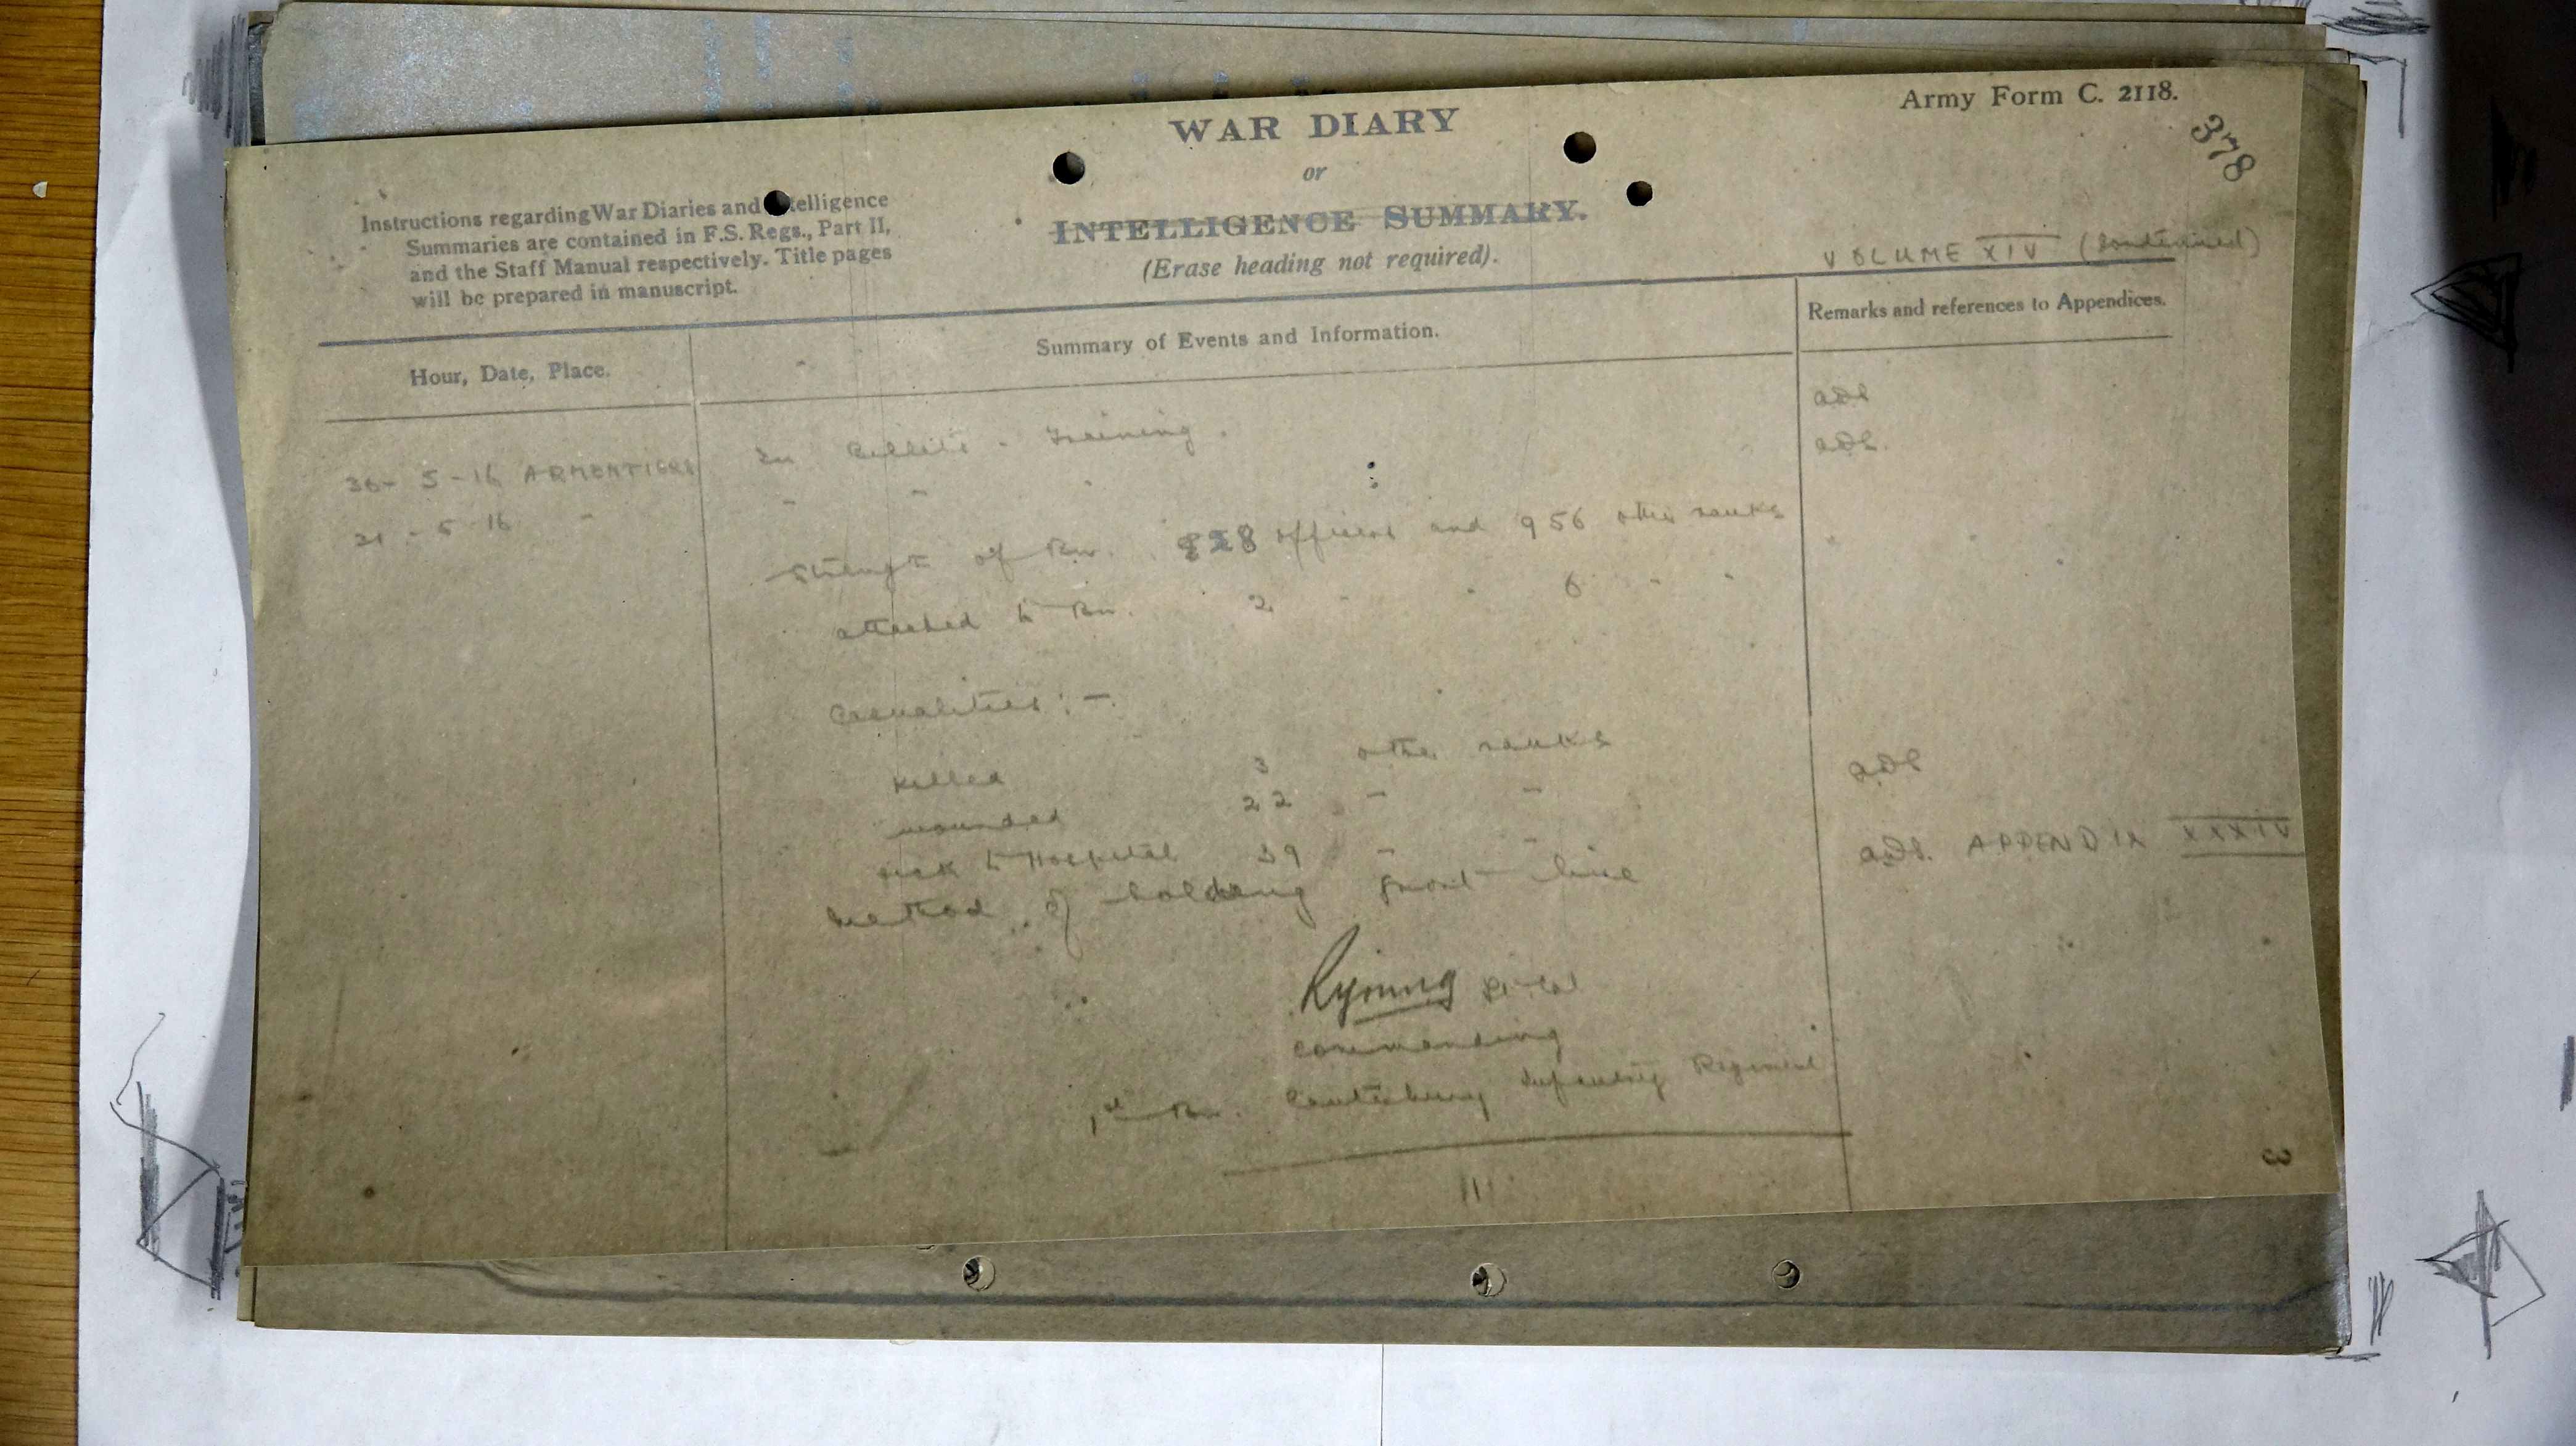 Army Form C. 2118.
378
WAR DIARY
or
INTELLIGENCE SUMMARY.
(Erase heading not required).
Instructions regarding War Diaries and Intelligence
Summaries are contained in F.S. Regs., Part II,
and the Staff Manual respectively. Title pages
will be prepared in manuscript.
VOLUME XIV (Continued)
Hour, Date, Place.
Summary of Events and Information.
Remarks and references to Appendices.
30-5-16 ARMENTIERES In Billets - Training. ADS
31-5-16 " " " " ADS.
Strength of Bn. 28 officers and 956 other ranks
attached to Bn. 2 " " 6 " "
Casualities :-
Killed 3 other ranks
wounded 22 " " ADS
sick to Hospital 39 " "
Method of holding front line ADS. APPENDIX XXXIV
RYoung Lt-Col
commanding
1st Bn. Canterbury Infantry Regiment
3